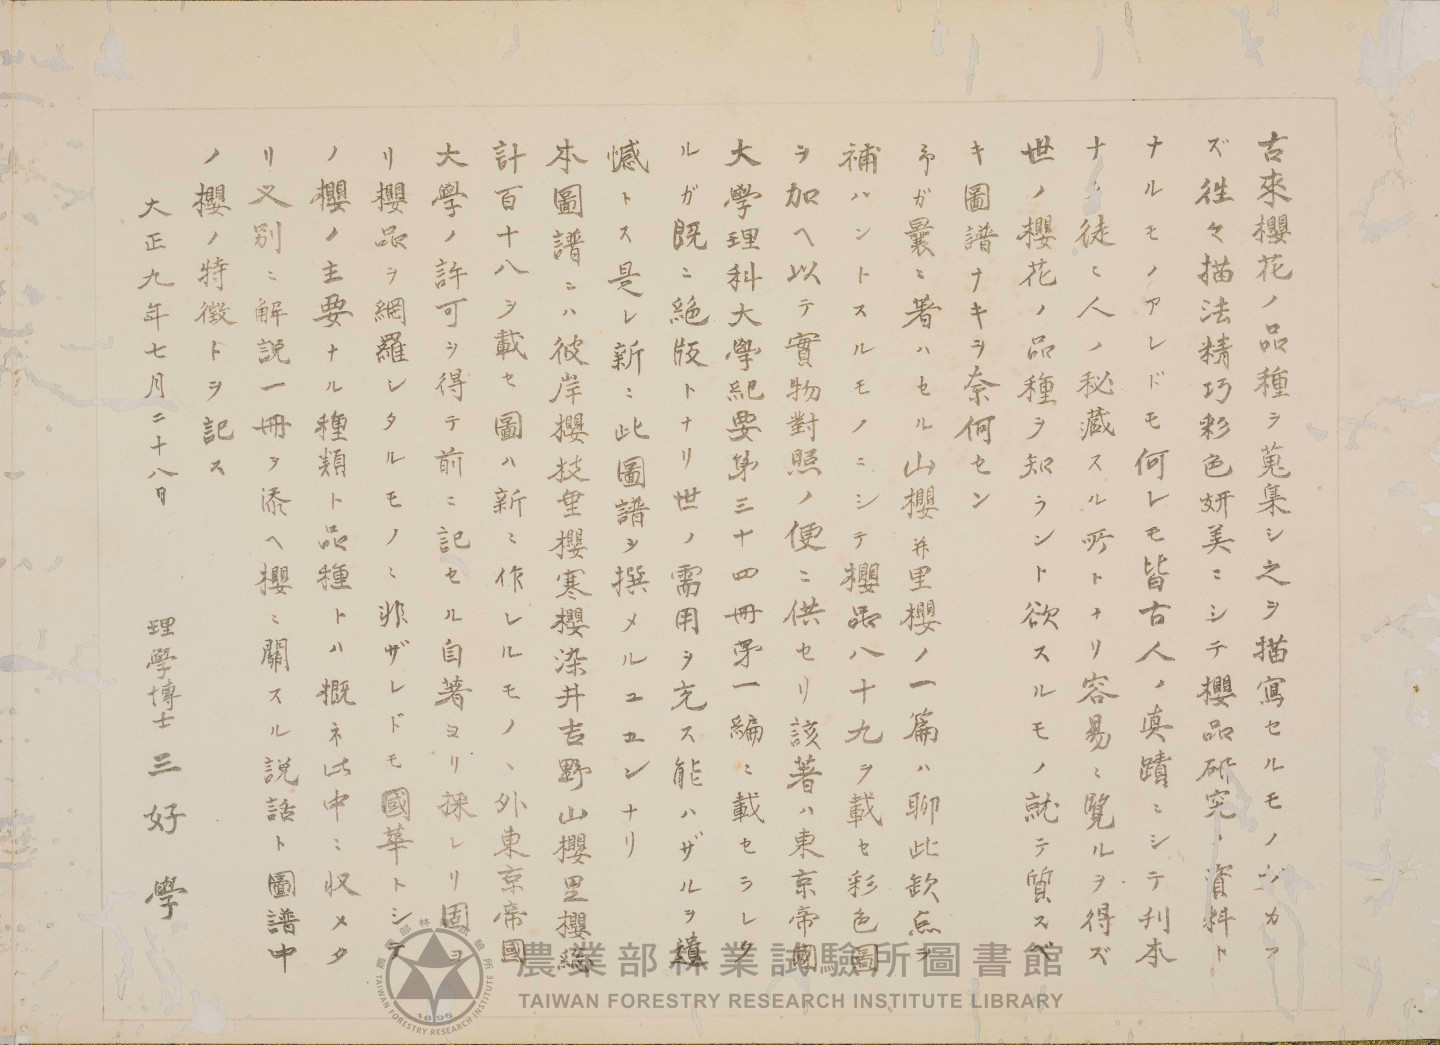 古來櫻花ノ品種ヲ蒐集シ之ヲ描寫セルモノ少カラ
ズ徃々描法精巧彩色姸美ニシテ櫻品硏究ノ資料ト
ナルモノアレドモ何レモ皆古人ノ眞蹟ニシテ刊本
ナク徒ニ人ノ秘藏スル所トナリ容易ニ覽ルヲ得ズ
世ノ櫻花ノ品種ヲ知ラント欲スルモノ就テ質スベ
キ圖譜ナキヲ奈何セン
予ガ曩ニ著ハセル山櫻并里櫻ノ一篇ハ聊此欽点ヲ
補ハントスルモノニシテ櫻品八十九ヲ載セ彩色圖
ヲ加ヘ以テ實物對照ノ便ニ供セリ該著ハ東京帝國
大學理科大學紀要第三十四冊第一編ニ載セラレタ
ルガ既ニ絶版トナリ世ノ需用ヲ充ス能ハザルヲ遺
憾トス是レ新ニ此圖譜ヲ撰メルユエンナリ
本圖譜ニハ彼岸櫻枝垂櫻寒櫻染井吉野山櫻里櫻総
計百十八ヲ載セ圖ハ新ニ作レルモノヽ外東京帝國
大學ノ許可ヲ得テ前ニ記セル自著ヨリ採レリ固ヨ
リ櫻品ヲ網羅シタルモノニ非ザレドモ國華トシテ
ノ櫻ノ主要ナル種類ト品種トハ概ネ此中ニ収メタ
リ又別ニ解説一冊ヲ添ヘ櫻ニ關スル説話ト圖譜中
ノ櫻ノ特徴トヲ記ス
大正九年七月二十八日
理學博士 三好學
農業部林業試驗所圖書館
TAIWAN FORESTRY RESEARCH INSTITUTE LIBRARY
TAIWAN FORESTRY RESEARCH INSTITUTE
1896